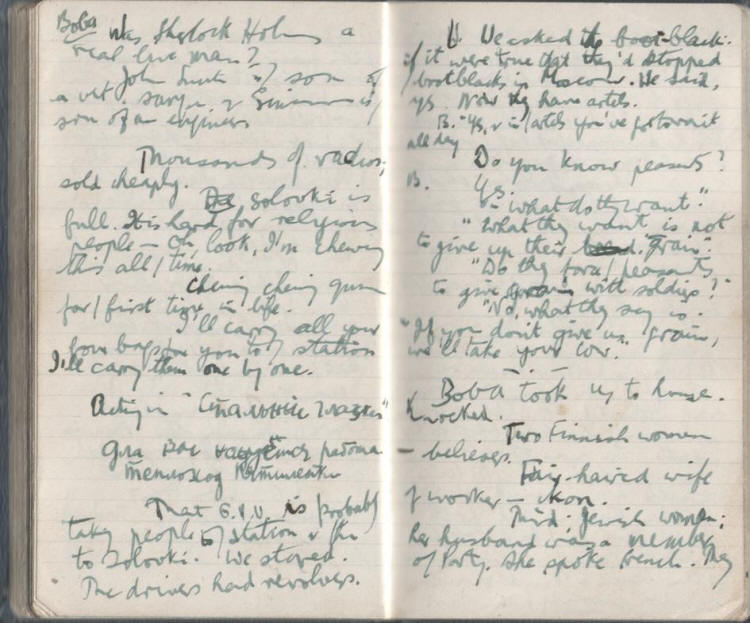 Boba Was Sherlock Holmes a
real live man?
John Smith is / son of
a vet. surgn. &
son of an engineer
Thousands of radios;
sold cheaply.
Solovki is
full. It is hard for religious
people — Oh, look, I'm chewing
this all / time.
Chewing chewing gum
for / first time in life.
I'll carry all your
four bags for you to / station
I'll carry them one by one.
Acting in "
для вас работа
теплоход
That G.P.U. is / probably
taking people to / station & then
to Solovki. We stared.
The drivers had revolvers.
We asked the boot-black:
if it were true that they'd stopped
/ bootblacks in Moscow. He said,
yes. Now they have artels.
B. "Yes, & in / artels you've got to wait
all day
Do you know peasants?
B. Yes.
"What do they want?"
"What they want is not
to give up their grain".
"Do they force / peasants
to give grain with soldiers?"
"No, what they say is.
"If you don't give us grain,
we'll take your cow.
Boba took us to house.
Knocked.
Two Finnish women
— believers.
Fair-haired wife
of worker — ikon.
Third, Jewish woman;
her husband was a member
of Party. She spoke French. They